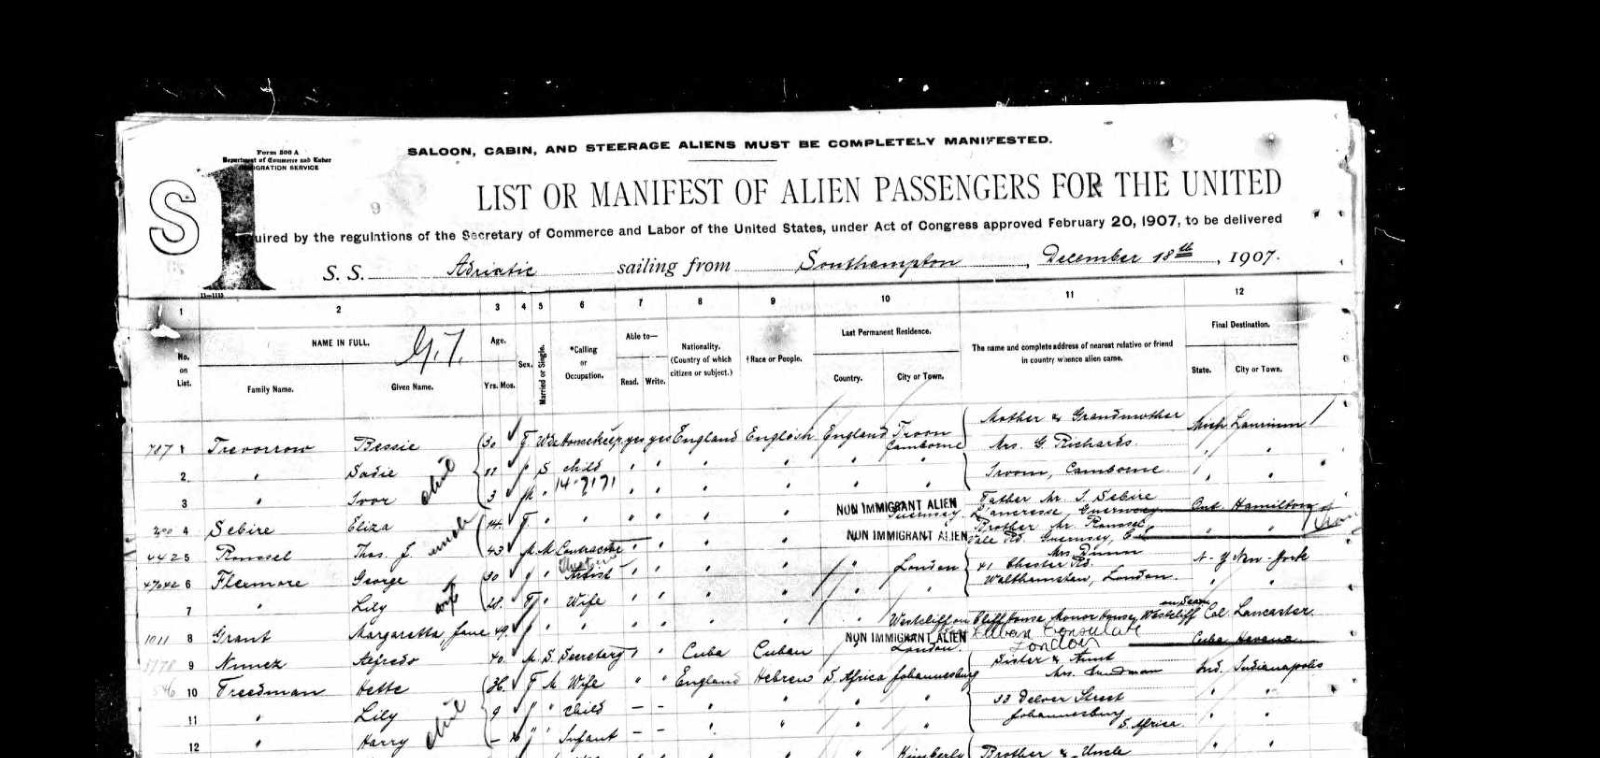 Form 500 A
Department of Commerce and Labor
IMMIGRATION SERVICE
SALOON, CABIN, AND STEERAGE ALIENS MUST BE COMPLETELY MANIFESTED.
S 1
9
LIST OR MANIFEST OF ALIEN PASSENGERS FOR THE UNITED
uired by the regulations of the Secretary of Commerce and Labor of the United States, under Act of Congress approved February 20, 1907, to be delivered
S. S. Adriatic sailing from Southampton, December 18th, 1907.
1 2 3 4 5 6 7 8 9 10 11 12
No. on List.
NAME IN FULL.
Family Name. Given Name.
Age.
Yrs. Mos.
Sex.
Married or Single.
*Calling or Occupation.
Able to—
Read. Write.
Nationality. (Country of which citizen or subject.)
†Race or People.
Last Permanent Residence.
Country. City or Town.
The name and complete address of nearest relative or friend in country whence alien came.
Final Destination.
State. City or Town.
Mother & Grandmother
1 Trevorrow Bessie 30 F Wd Housekeep yes yes England English England Troon Camborne Mrs. G. Richards Mich Laurium
2 " Sadie 11 F S child " " " " " " Troon, Camborne " "
3 " Ivor 3 M " " " " " "
4 Sebire Eliza 14 F " " " " " NON IMMIGRANT ALIEN Guernsey Father Mr. Sebire L'ancresse, Guernsey Ont. Hamilton
5 Roussel Thos. J. 43 M M Contractor " " " " NON IMMIGRANT ALIEN Brother Mr. Roussel Vale Rd. Guernsey " "
6 Fleemore George 30 " Artist " " " " " London Mrs Dunn 41 Chester Rd. Walthamstow, London. N-Y New-York
7 " Lily 28 F " Wife " " " " " "
8 Grant Margaretta Jane 49 " " " " " " " Westcliff on Sea Cliff House, Manor House, Westcliff Cal. Lancaster
9 Nunez Alfredo 40 M S Secretary " " Cuba Cuban NON IMMIGRANT ALIEN London Cuban Consulate London Cuba Havana
10 Freedman Hette 36 F M Wife " " England Hebrew S. Africa Johannesburg Sister & Aunt Ind. Indianapolis
11 " Lily 9 " child — — " " " " 53 Street Johannesburg " "
12 " Harry Infant — — " " " S. Africa " "
Kimberly Brother & Uncle